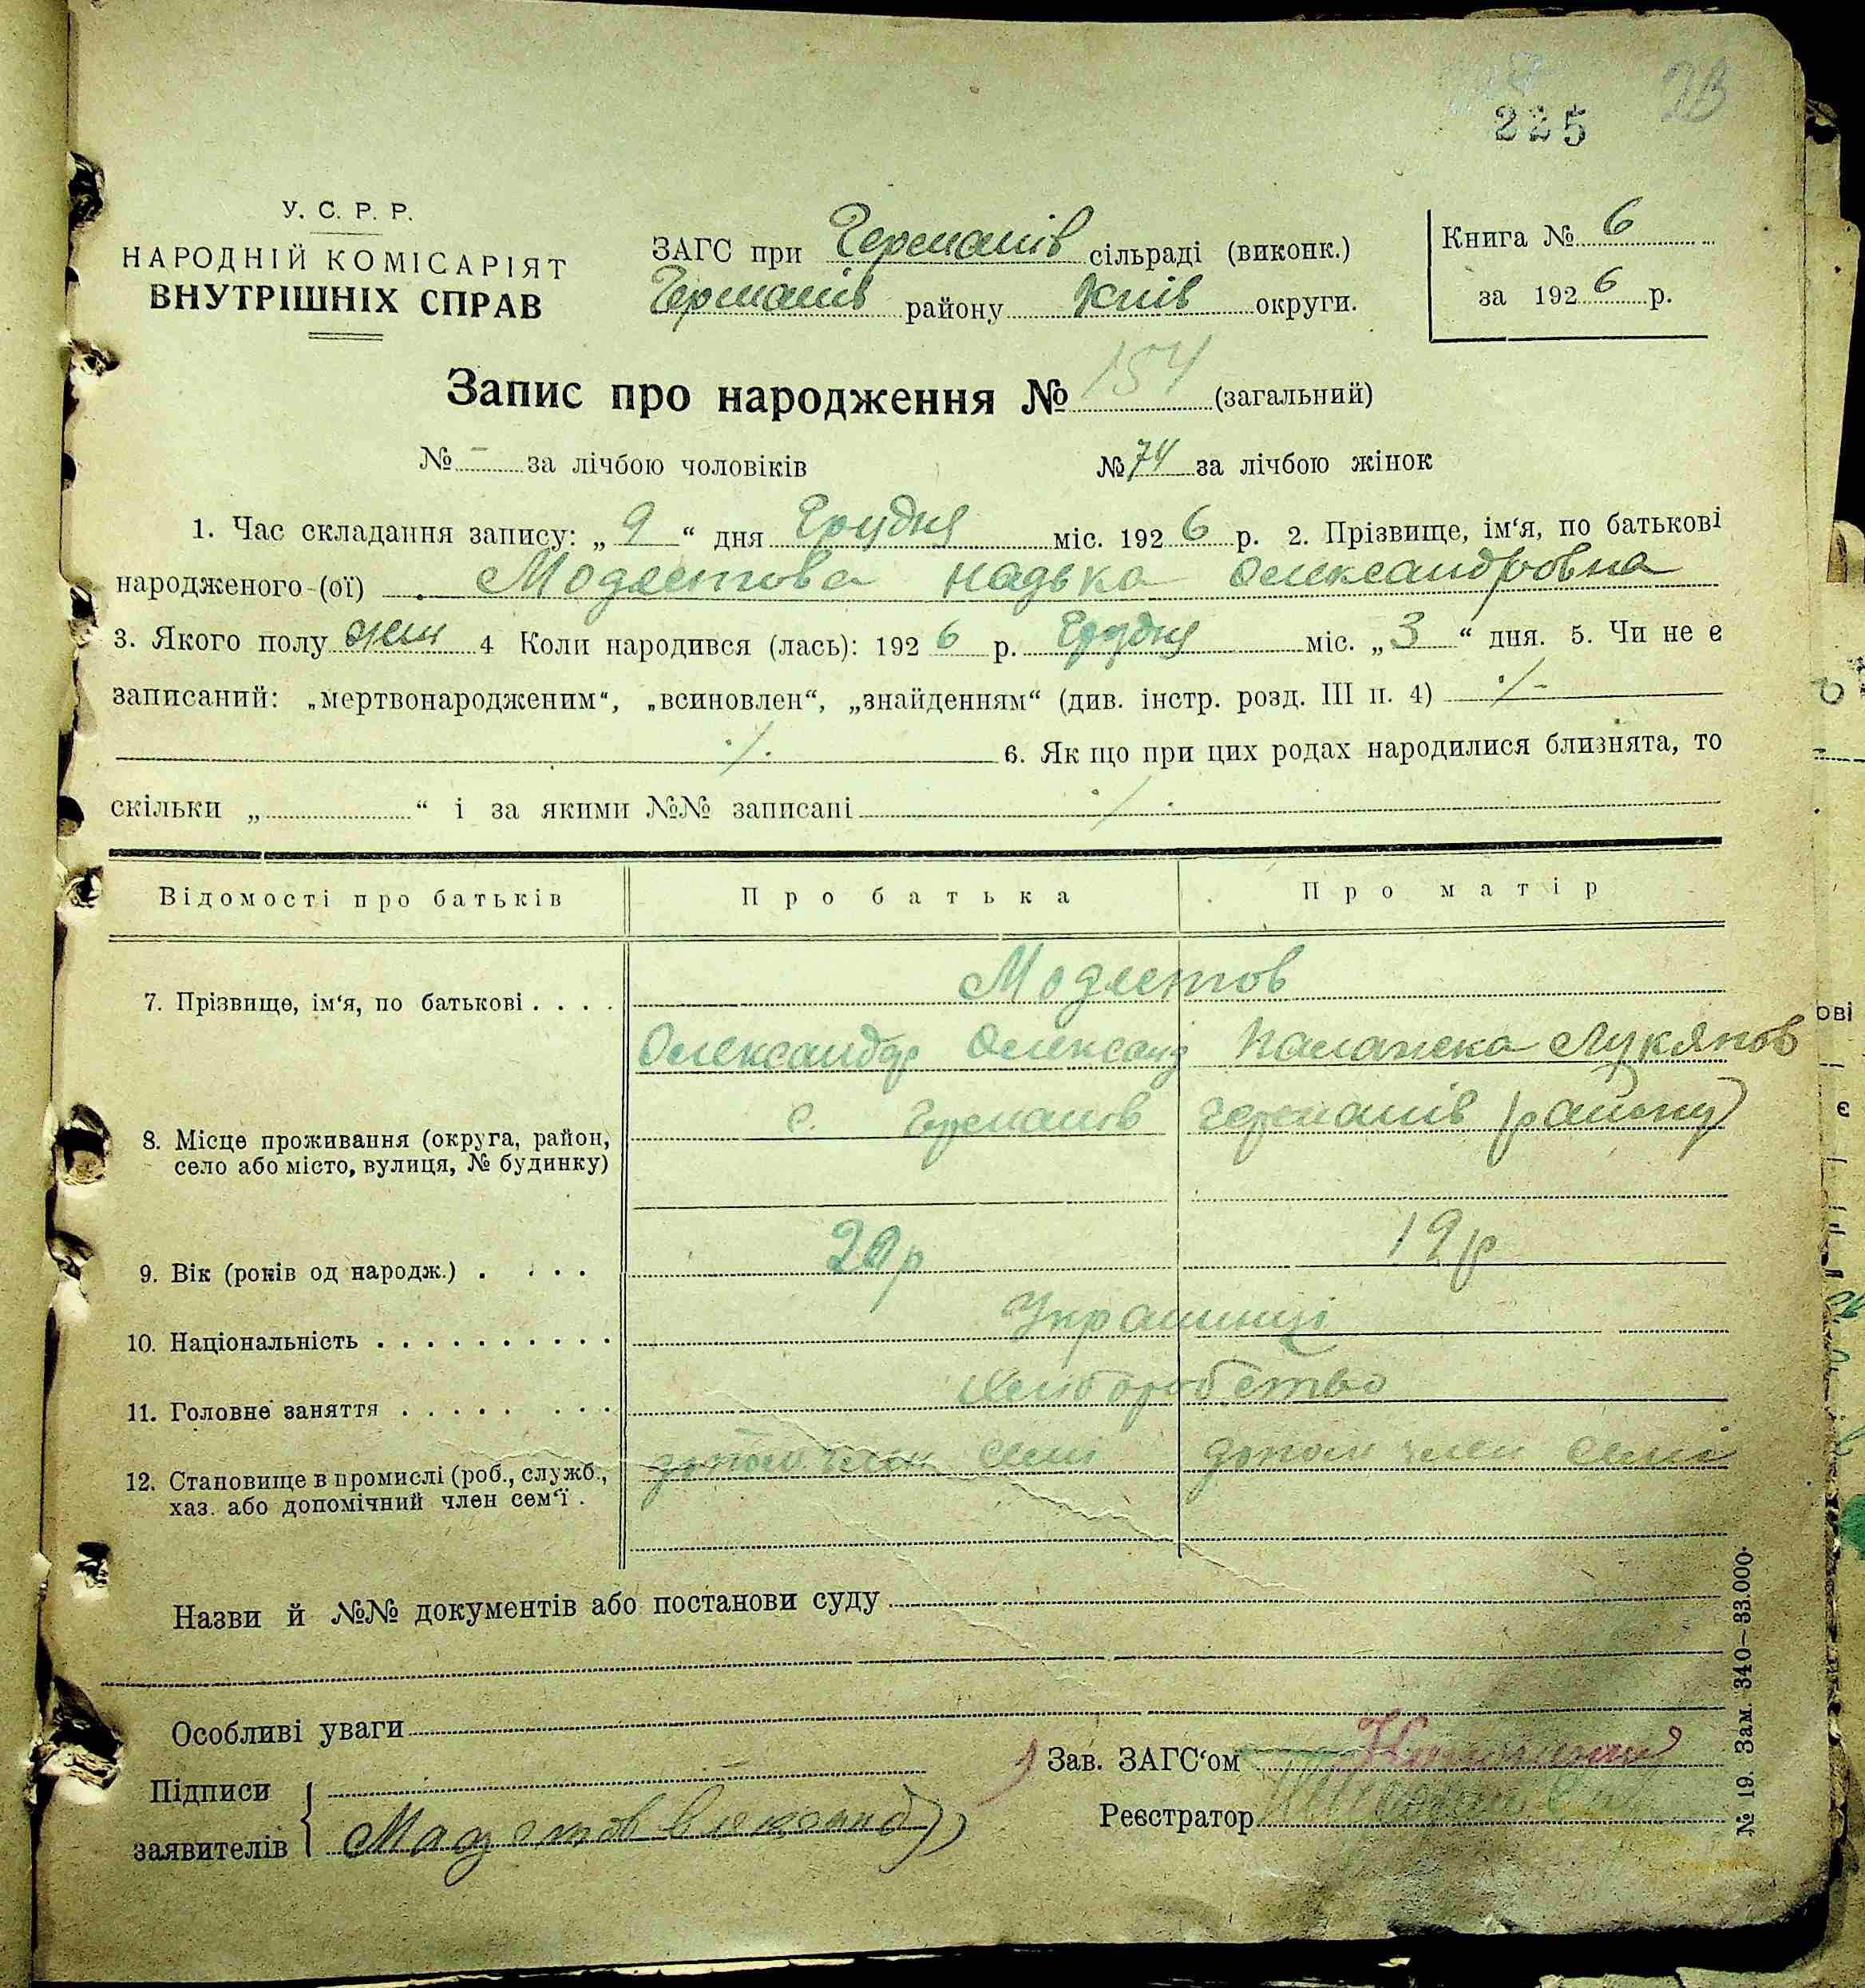 225 23
У. С. Р. Р.
НАРОДНІЙ КОМІСАРІЯТ
ВНУТРІШНІХ СПРАВ
ЗАГС при Германів сільраді (виконк.)
Германів району Київ округи.
Книга № 6
за 1926 р.
Запис про народження № 154 (загальний)
№ - за лічбою чоловіків № 74 за лічбою жінок
1. Час складання запису: „ 9 “ дня Грудня міс. 1926 р. 2. Прізвище, ім‘я, по батькові
народженого-(ої) Модлетова Надька Олександровна
3. Якого полу жен 4 Коли народився (лась): 1926 р. Грудня міс. „3“ дня. 5. Чи не є
записаний: „мертвонародженим“, „всиновлен“, „знайденням“ (див. інстр. розд. III п. 4) ·/-
·/. 6. Як що при цих родах народилися близнята, то
скільки „ “ і за якими №№ записані ·/·
Відомості про батьків Про батька Про матір
7. Прізвище, ім‘я, по батькові . . . . Модлетов
Олександр Олександ Палажка Лукянов
8. Місце проживання (округа, район, с. Германів Германів району
село або місто, вулиця, № будинку)
9. Вік (років од народж.) . . . . 20р 19р
10. Національність . . . . . . . . . . Українці
11. Головне заняття . . . . . . . . Хліборобство
12. Становище в промислі (роб., служб., допом. член семі допом член семі
хаз. або допомічний член сем‘ї .
Назви й №№ документів або постанови суду
Особливі уваги
Підписи
заявителів
Зав. ЗАГС‘ом
Реєстратор
№ 19. Зам. 340—33.000.